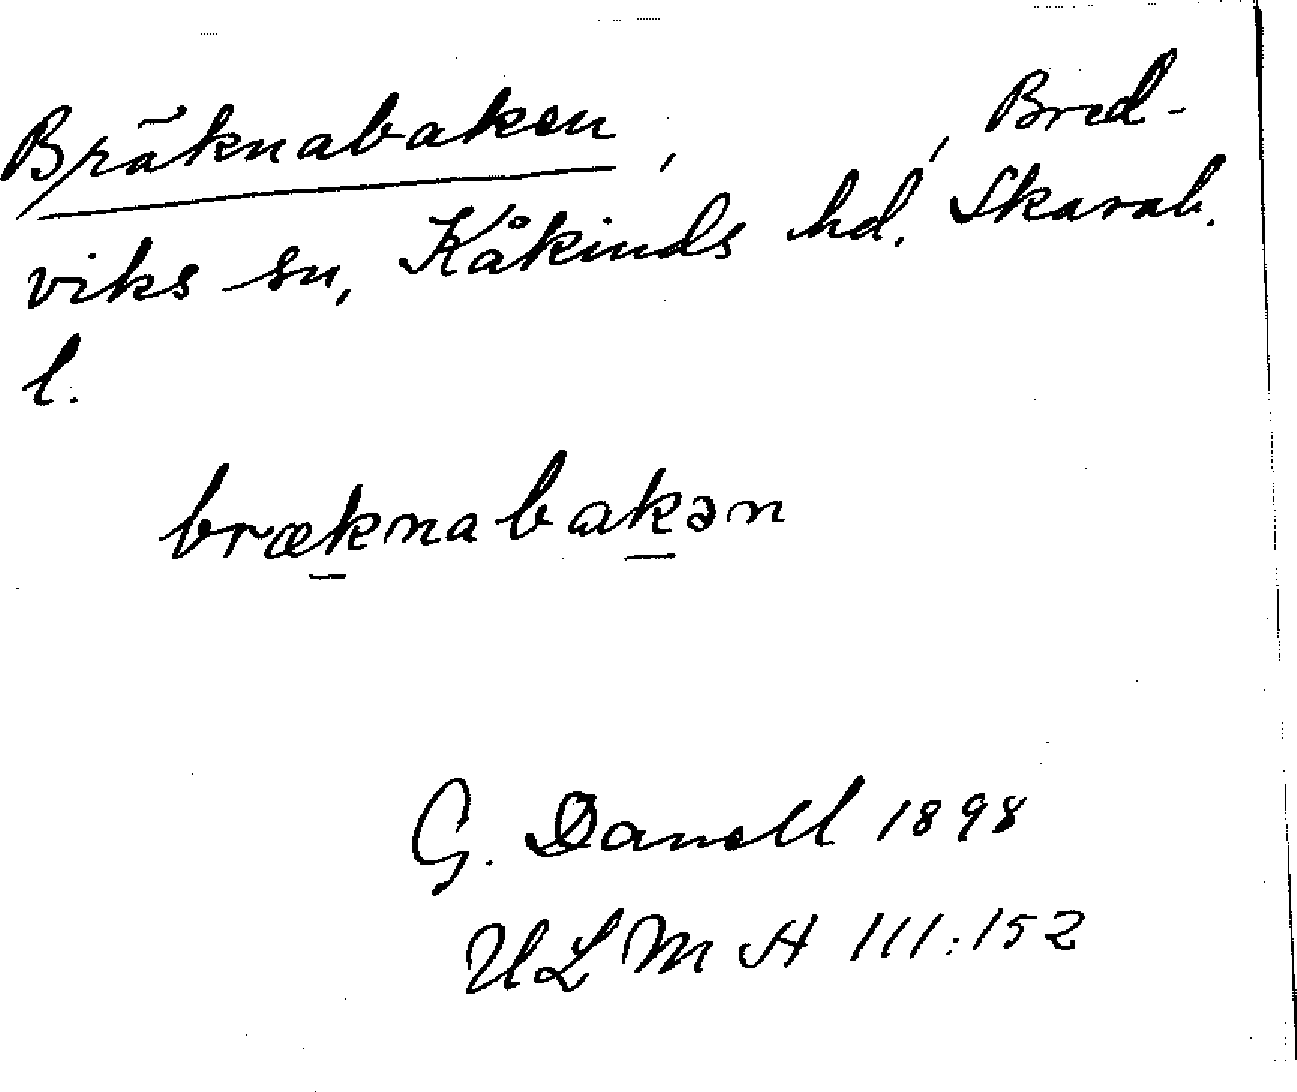 Bräknabaken, , Bred-
viks sn, Kåkinds hd. Skarab.
l.
bræknabakən
G. Danell 1898
ULMA 111:152